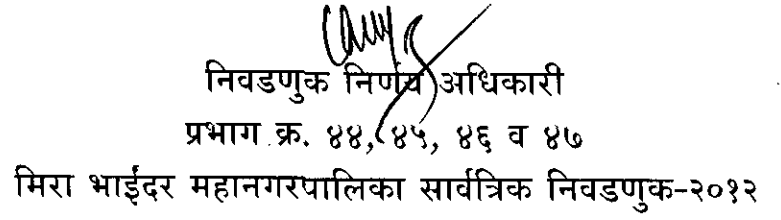 निवडणुक निर्णय अधिकारी
प्रभाग क्र. ४४, ४५, ४६ व ४७
मिरा भाईंदर महानगरपालिका सार्वत्रिक निवडणुक-२०१२